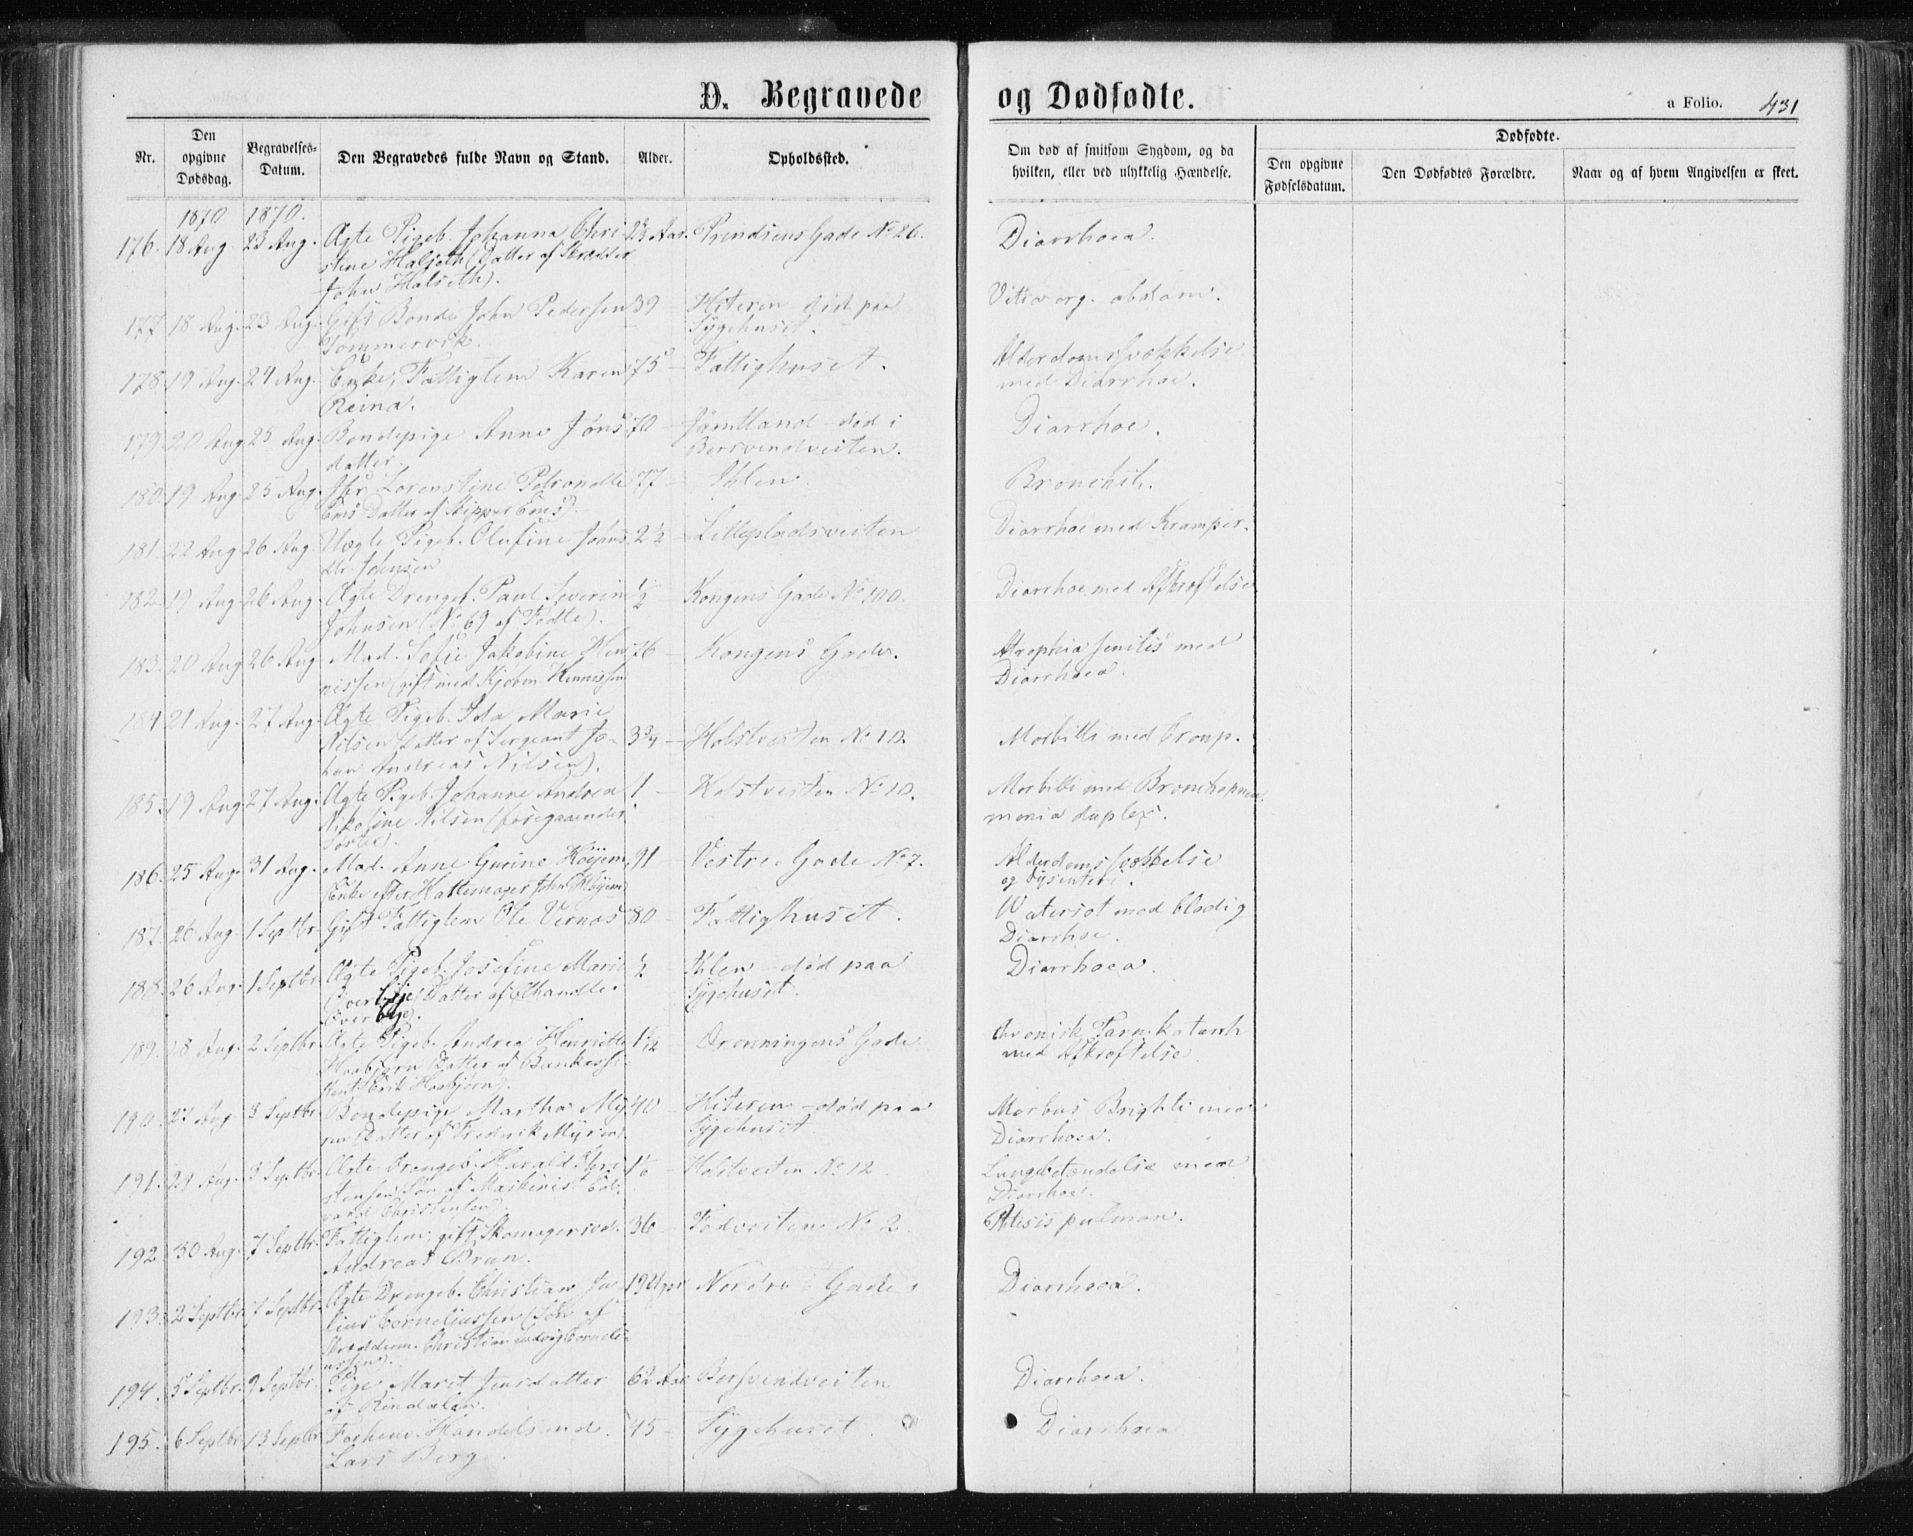 D. Begravede og Dødfødte.
a Folio. 431
Nr.
Den opgivne Dødsdag.
Begravelses-Datum.
Den Begravedes fulde Navn og Stand.
Alder.
Opholdssted.
Om død af smitsom Sygdom, og da hvilken, eller ved ulykkelig Hændelse.
Dødfødte.
Den opgivne Fødselsdatum.
Den Dødfødtes Forældre.
Naar og af hvem Angivelsen er skeet.
1870 1870.
176. 18 Aug. 23 Aug. Ægte Pigeb. Johanna Chri- Prindsens Gade No 26. Diarrhoea.
stine Halseth (Datter af Skrædder
John Halseth).
177. 18 Aug. 23 Aug. Gift Bonde John Pedersen 39 — Hiteren død paa Vitia org. abdom.
Tommervik. Sygehuset.
178. 19 Aug. 24 Aug. Enke, Fattiglem Karen 75 — Fattighuset. Alderdomssvækkelse
Reina. med Diarrhoe.
179. 20 Aug. 25 Aug. Bondepige Anne Jøns 70 — Jämtland — død i Diarrhoe.
datter Bersvendveiten.
180. 19 Aug. 25 Aug. Jfr Lorentine Petronelle 77 — Ihlen. Bronchit.
Ems (Datter af Skipper Ems).
181. 22 Aug. 26 Aug. Uægte Pigeb. Olufine 2½ — Lillepladsveiten Diarrhoe med Kramper.
Johnsen
182. 19 Aug. 26 Aug. Ægte Drengeb. Paul Severin ½ — Kongens Gade No 100. Diarrhoe med Afkræftelse
Johnsen (No 69 af Fødte).
183. 20 Aug. 26 Aug. Mad. Sofie Jakobine Hen 76 — Kongens Gade. Atrophia senilis med
nissen (gift med Kjøbm. Hennissen) Diarrhoea.
184. 21 Aug. 27 Aug. Ægte Pigeb. Ida Marie
Nilsen (Datter af Sergeant Jo- 3¾ — Holstveiten No 10. Morbilli med Croup.
han Andreas Nilsen).
185. 19 Aug. 27 Aug. Ægte Pigeb. Johanne Andrea 1 — Holstveiten No 10. Morbilli med Bronchopneu-
Nikoline Nilsen (foregaaendes monia duplex.
Søster).
186. 25 Aug. 31 Aug. Mad. Anne Gurine Høyem, 91 — Vestre Gade No 7. Alderdomssvækkelse
Enke efter Hattemager John Høyem og Dysenteri.
187. 26 Aug. 1 Septbr. Gift Fattiglem Ole Vernæs 80 — Fattighuset. Watersot med blodig
Diarrhoe.
188. 26 Aug. 1 Septbr. Ægte Pigeb. Josefine Marie ½ — Ihlen — død paa Diarrhoea.
Overbye (Datter af Sygehuset.
Overbye).
189. 28 Aug. 2 Septbr. Ægte Pigeb. Andrea Henriette Dronningens Gade Chronisk Tarmkatarrh
Haabjørn (Datter af med Afkræftelse.
Erik Haabjørn).
190. 27 Aug. 3 Septbr. Bondepige Martha My 40 — Hiteren — død paa Morbus Brighti med
ren (Datter af Frederik Myren). Sygehuset. Diarrhoea.
191. 29 Aug. 3 Septbr. Ægte Drengeb. Harald Chri Holstveiten No 12. Lungebetændelse med
stensen (Søn af Maskinist Ed- Diarrhoe.
vard Christensen).
192. 30 Aug. 7 Septbr. Fattiglem, gift Skomagersvd. 36 — Fodveiten No 2. Phtisis pulmon.
Andreas Brun.
193. 2 Septbr. 7 Septbr. Ægte Drengeb. Christian Ju 19 Uger Nordre Gade Diarrhoea.
lius Corneliussen (Søn af
Skrædderm. Christian Ludvig Corneli-
ussen).
194. 5 Septbr. 9 Septbr. Pige Marit Jensdatter 62 Aar Bersvendveiten Diarrhoea.
af Rindalen.
195. 6 Septbr. 13 Septbr. Forhenv. Handelsmd. 45 — Sygehuset. Diarrhoea
Lars Berg.